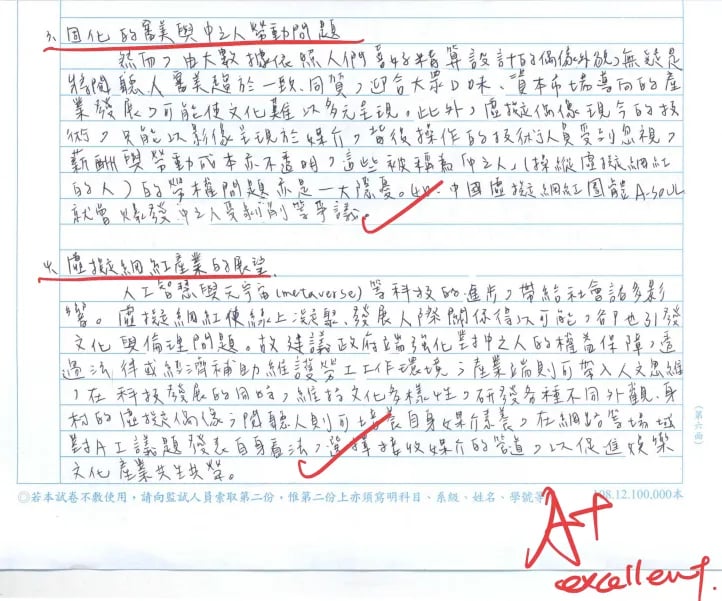 3、固化的審美與中之人勞動問題
然而，由大數據依照人們喜好精算設計的偶像外貌，無疑是
將閱聽人審美趨於一致、同質，迎合大眾口味、資本市場導向的產
業發展，可能使文化難以多元呈現。此外，虛擬偶像現今的技
術，只能以影像呈現於媒介，背後操作的技術人員受到忽視，
薪酬與勞動成本亦不透明，這些被稱為「中之人」（操縱虛擬網紅
的人）的勞權問題亦是一大隱憂。如：中國虛擬網紅團體A-SOUL
就曾爆發中之人受剝削等爭議。
4、虛擬網紅產業的展望
人工智慧與元宇宙(metaverse)等科技的進步，帶給社會諸多影
響。虛擬網紅使線上凝聚、發展人際關係得以可能，卻也引發
文化與倫理問題。故建議政府端強化對中之人的權益保障，透
過法律或經濟補助維護勞工工作環境；產業端則可帶入人文思維
，在科技發展的同時，維持文化多樣性，研發各種不同外觀、身
材的虛擬偶像；閱聽人則可培養自身媒介素養，在網路等場域
對AI議題發表自身看法，選擇接收媒介的管道，以促進娛樂
文化產業共生共榮。
（第六面）
◎若本試卷不敷使用，請向監試人員索取第二份，惟第二份上亦須寫明科目、系級、姓名、學號等 108.12.100,000本
A+
excellent.